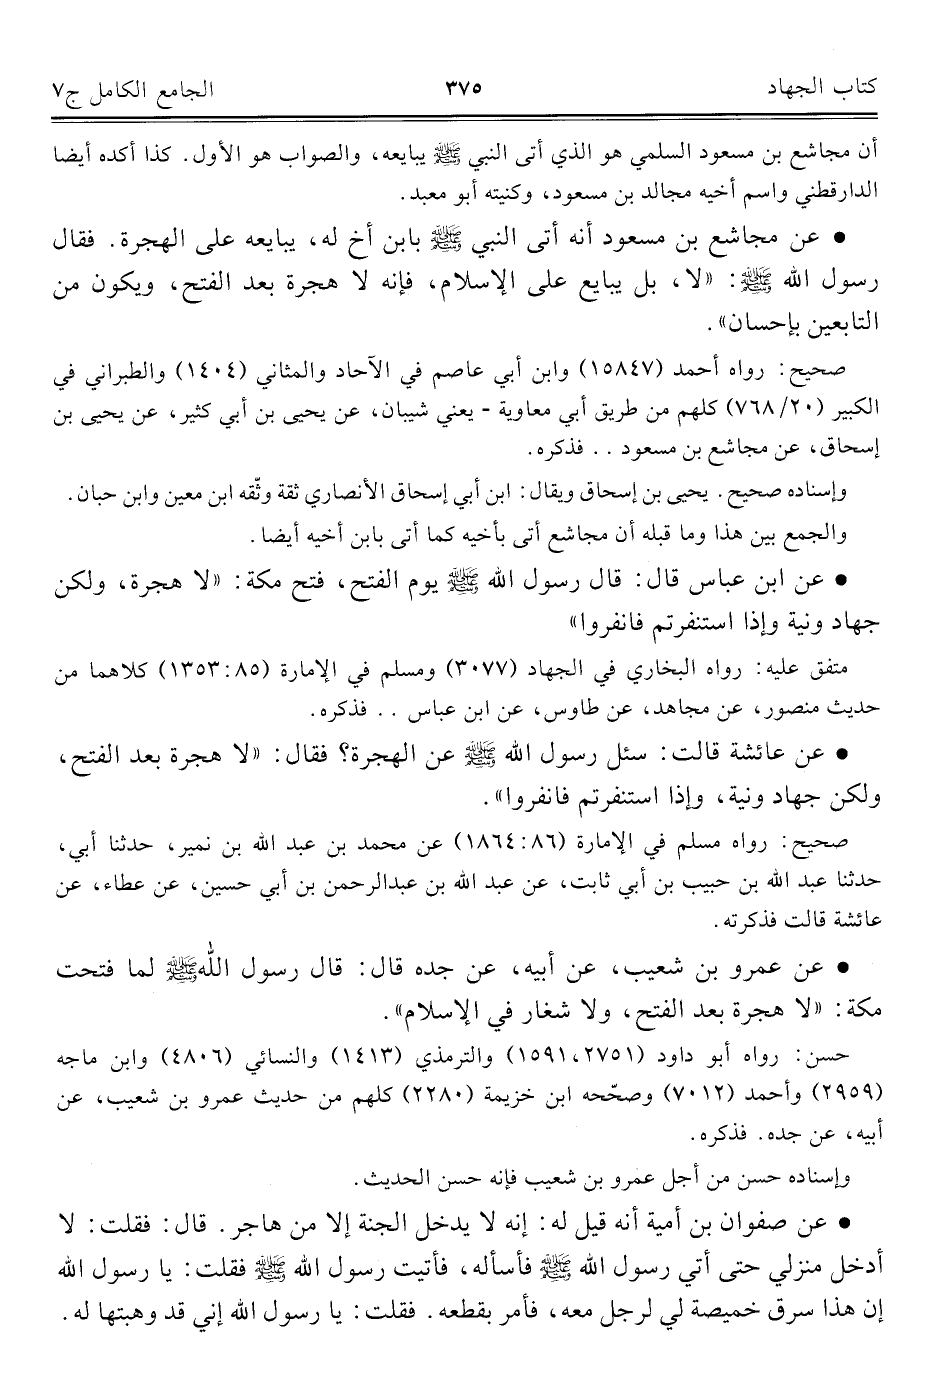 كتاب الجهاد ٣٧٥ الجامع الكامل ج٧
أن مجاشع بن مسعود السلمي هو الذي أتى النبي ﷺ يبايعه، والصواب هو الأول. كذا أكده أيضا
الدارقطني واسم أخيه مجالد بن مسعود، وكنيته أبو معبد.
• عن مجاشع بن مسعود أنه أتى النبي ﷺ بابن أخ له، يبايعه على الهجرة. فقال
رسول الله ﷺ: «لا، بل يبايع على الإسلام، فإنه لا هجرة بعد الفتح، ويكون من
التابعين بإحسان».
صحيح: رواه أحمد (١٥٨٤٧) وابن أبي عاصم في الآحاد والمثاني (١٤٠٤) والطبراني في
الكبير (٧٦٨/٢٠) كلهم من طريق أبي معاوية - يعني شيبان، عن يحيى بن أبي كثير، عن يحيى بن
إسحاق، عن مجاشع بن مسعود .. فذكره.
وإسناده صحيح. يحيى بن إسحاق ويقال: ابن أبي إسحاق الأنصاري ثقة وثّقه ابن معين وابن حبان.
والجمع بين هذا وما قبله أن مجاشع أتى بأخيه كما أتى بابن أخيه أيضا.
• عن ابن عباس قال: قال رسول الله ﷺ يوم الفتح، فتح مكة: «لا هجرة، ولكن
جهاد ونية وإذا استنفرتم فانفروا»
متفق عليه: رواه البخاري في الجهاد (٣٠٧٧) ومسلم في الإمارة (١٣٥٣:٨٥) كلاهما من
حديث منصور، عن مجاهد، عن طاوس، عن ابن عباس .. فذكره.
• عن عائشة قالت: سئل رسول الله ﷺ عن الهجرة؟ فقال: «لا هجرة بعد الفتح،
ولكن جهاد ونية، وإذا استنفرتم فانفروا».
صحيح: رواه مسلم في الإمارة (١٨٦٤:٨٦) عن محمد بن عبد الله بن نمير، حدثنا أبي،
حدثنا عبد الله بن حبيب بن أبي ثابت، عن عبد الله بن عبدالرحمن بن أبي حسين، عن عطاء، عن
عائشة قالت فذكرته.
• عن عمرو بن شعيب، عن أبيه، عن جده قال: قال رسول اللهﷺ لما فتحت
مكة: «لا هجرة بعد الفتح، ولا شغار في الإسلام».
حسن: رواه أبو داود (١٥٩١،٢٧٥١) والترمذي (١٤١٣) والنسائي (٤٨٠٦) وابن ماجه
(٢٩٥٩) وأحمد (٧٠١٢) وصحّحه ابن خزيمة (٢٢٨٠) كلهم من حديث عمرو بن شعيب، عن
أبيه، عن جده. فذكره.
وإسناده حسن من أجل عمرو بن شعيب فإنه حسن الحديث.
• عن صفوان بن أمية أنه قيل له: إنه لا يدخل الجنة إلا من هاجر. قال: فقلت: لا
أدخل منزلي حتى أتي رسول الله ﷺ فأسأله، فأتيت رسول الله ﷺ فقلت: يا رسول الله
إن هذا سرق خميصة لي لرجل معه، فأمر بقطعه. فقلت: يا رسول الله إني قد وهبتها له.